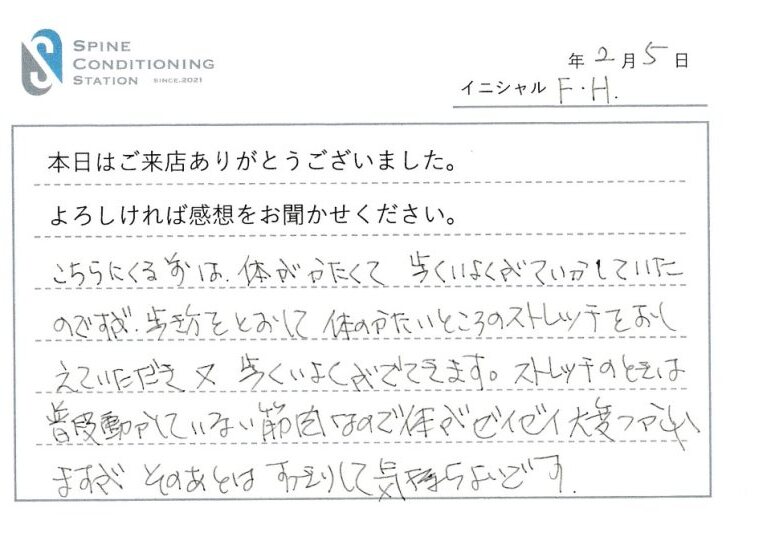 SPINE
CONDITIONING
STATION SINCE.2021
年 2 月 5 日
イニシャル F.H.
本日はご来店ありがとうございました。
よろしければ感想をお聞かせください。
こちらにくる前は、体がかたくて 歩くいよくがていかしていた
のですが、歩き方をとおして 体のかたいところのストレッチをおし
えていただき 又 歩くいよくがでてきます。ストレッチのときは
普段動かしていない筋肉なので体がゼイゼイ大変つかれ
ますが そのあとは すっきりして気持ちよいです。